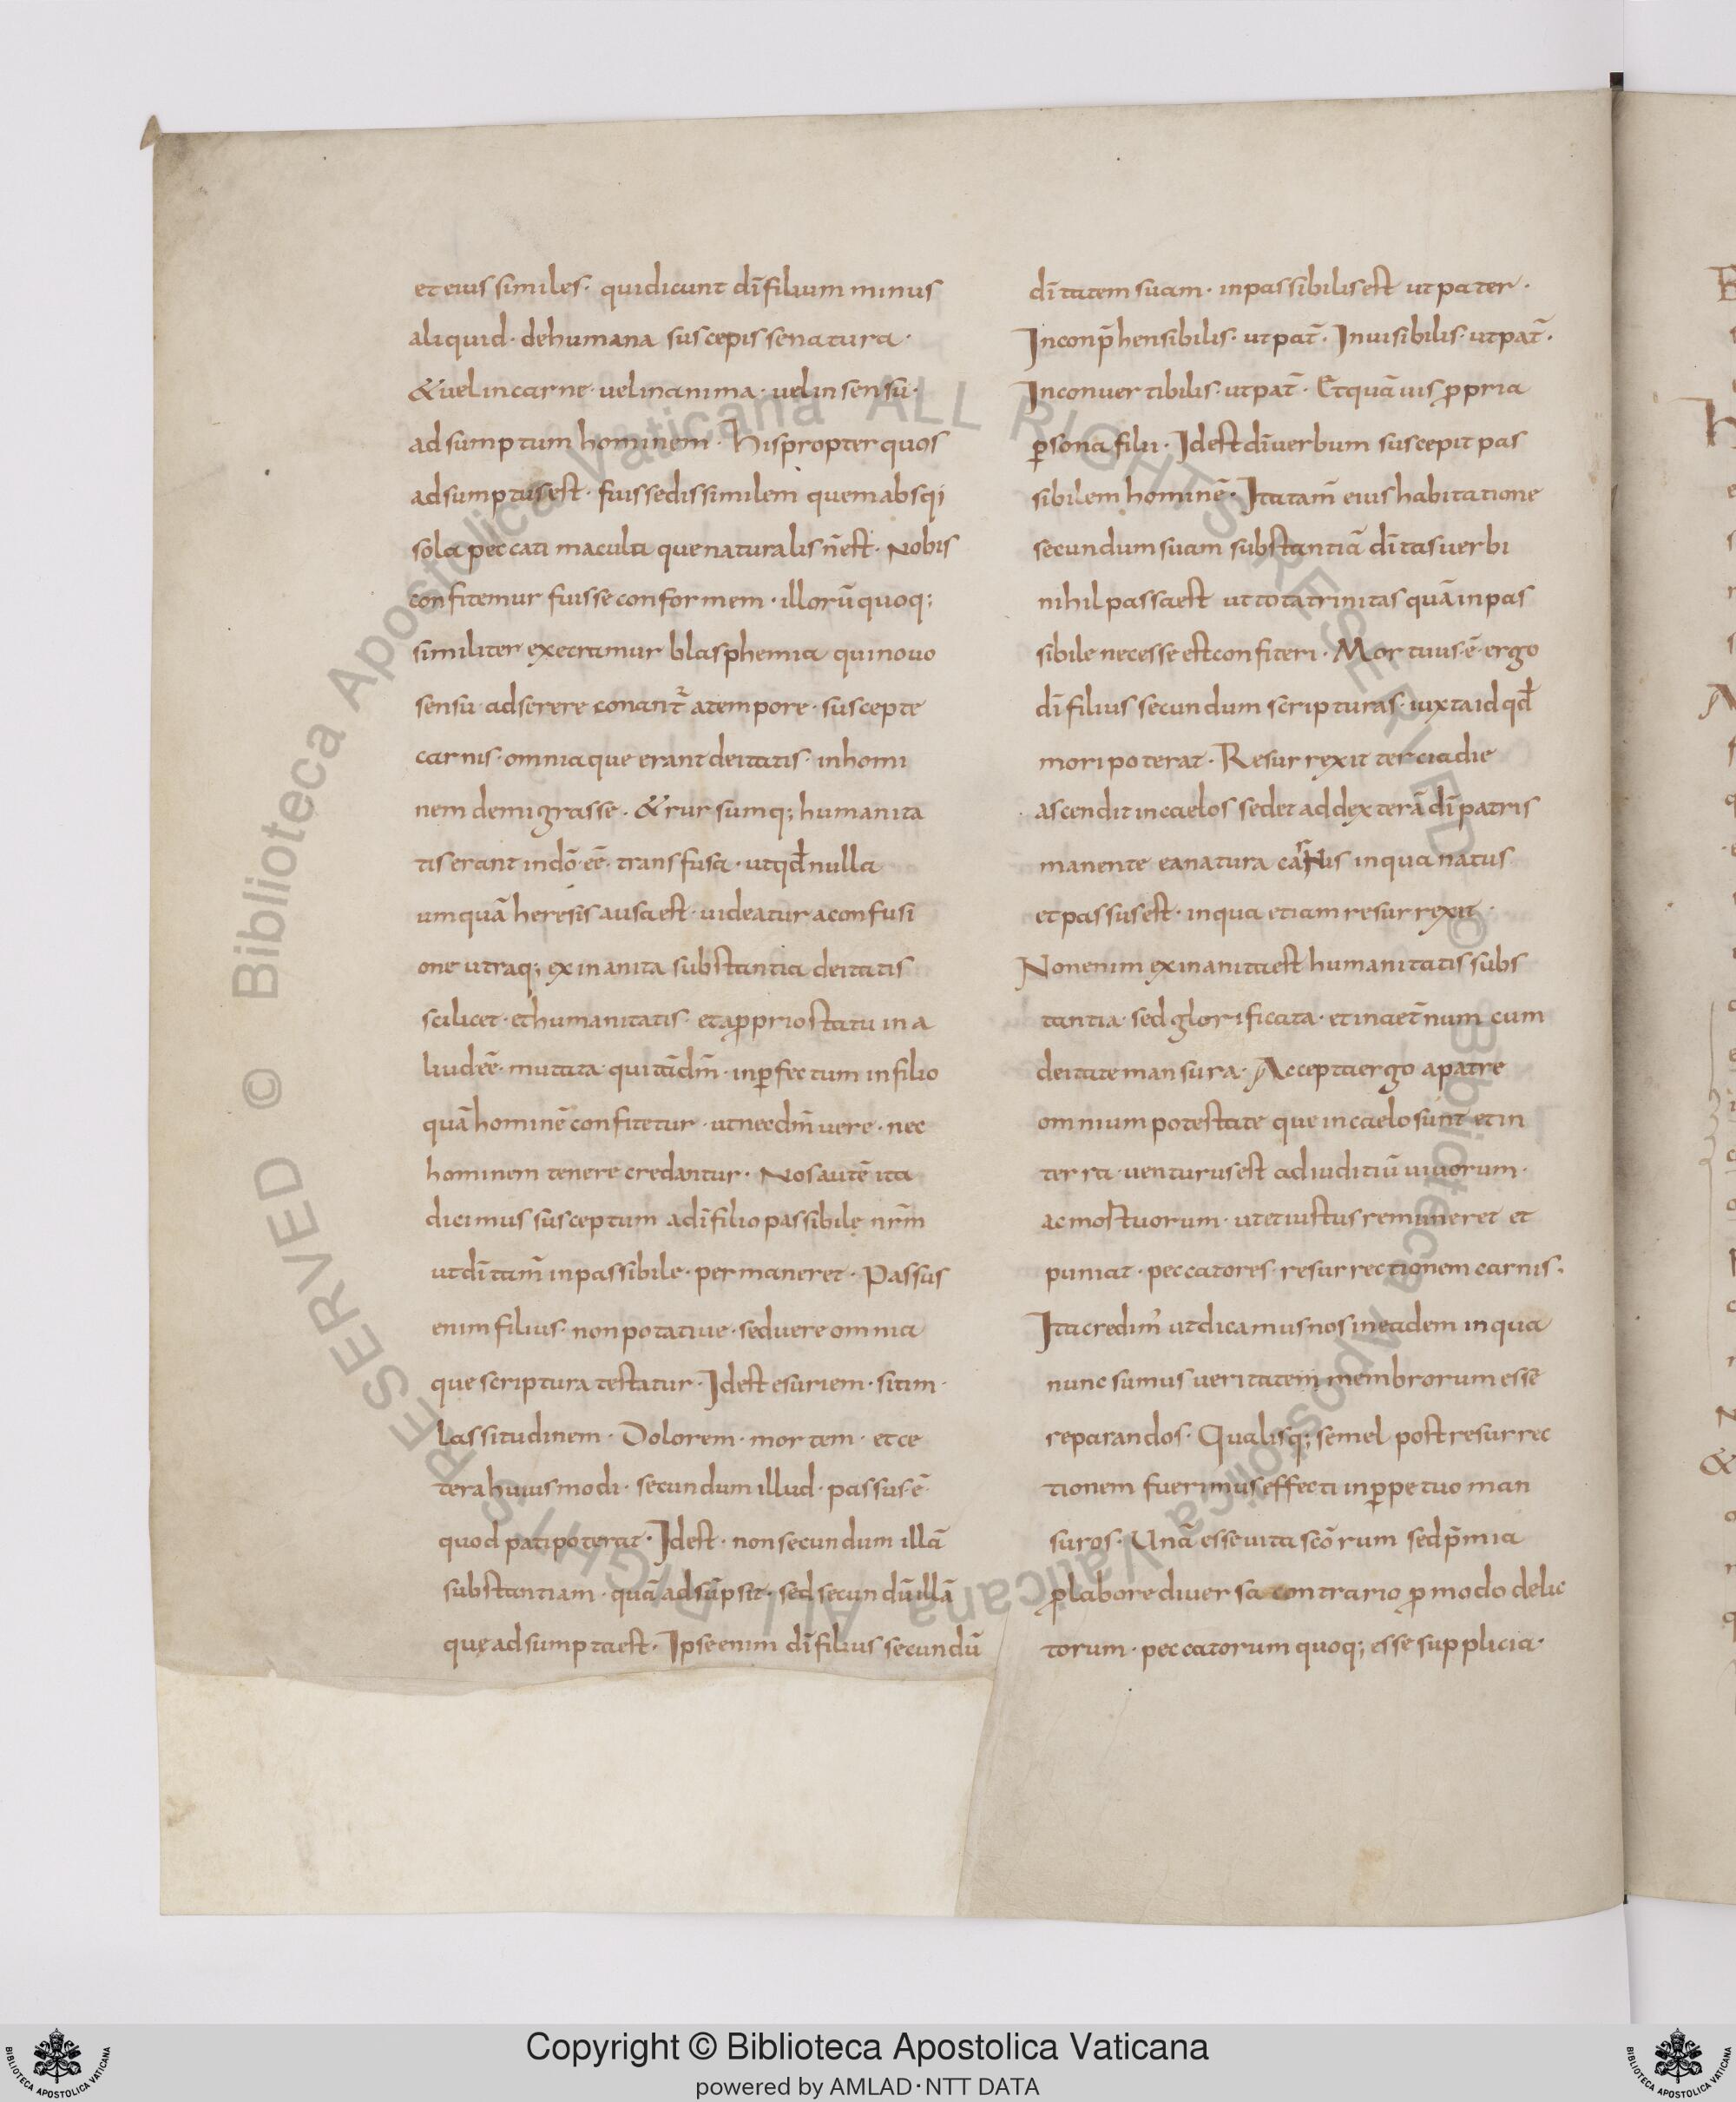 et eius similes· qui dicunt dī filium minus
aliquid· de humana suscepisse natura·
& vel in carne· vel in anima· vel in sensu·
adsumptum hominem· His propter quos
adsumptus est· fuisse dissimilem quem absq;
sola peccati macula que naturalis n̄ est· Nobis
confitemur fuisse conformem· illorū quoq;
similiter execramur blasphemia qui nouo
sensu adserere conant̄ a tempore· suscepte
carnis· omnia que erant deitatis· in homi
nem demigrasse· & rursumq; humanita
tis erant in dō· eē· transfusa· ut qd̄ nulla
umquā heresis ausa est· uideatur a confusi
one utraq; exinanita substantia deitatis
scilicet· et humanitatis· et a ꝓprio statu in a
liud eē· mutata· qui tā dm̄· inꝑfectum in filio
quā hominē confitetur· ut nec dm̄ vere· nec
hominem tenere credantur· Nos autē ita
dicimus susceptum a dī filio passibile nrm̄
ut dītam̄ inpassibile· permaneret· Passus
enim filius· non potatiue· sed uere omnia
que scriptura testatur· Id est esuriem· sitim·
Lassitudinem· Dolorem· mortem· et ce
tera huiusmodi· secundum illud· passus·ē·
quod pati poterat· Id est· non secundum illā
substantiam· quā adsūpsit· sed secundū illā
quę adsumpta est· Ipse enim dī filius secundū
dītatem suam· inpassibilis est ut pater·
Inconp̄hensibilis· ut pat̄· Inuisibilis· ut pat̄·
Inconuertibilis· ut pat̄· Et quāuis ꝓpria
ꝑsona filii· Id est dī uerbum suscepit pas
sibilem hominē· Ita tam̄ eius habitatione
secundum suam substantiā dītas uerbi
nihil passa est ut tota trinitas quā inpas
sibile necesse est confiteri· Mortuus·ē· ergo
dī filius secundum scripturas· iuxta id qd̄
mori poterat· Resurrexit tercia die
ascendit in caelos sedet ad dexterā dī patris
manente ea natura carnis in qua natus
et passus est· in qua etiam resurrexit·
Non enim exinanita est humanitatis subs
tantia· sed glorificata· et in aet̄num cum
deitate mansura· Accepta ergo a patre
omnium potestate que in caelo sunt et in
terra· uenturus est ad iuditiū uiuorum·
ac mortuorum· ut et iustus remuneret et
puniat· peccatores· resurrectionem carnis·
Ita credim' ut dicamus nos in eadem in qua
nunc sumus ueritatem membrorum esse
reparandos· Qualisq; semel post resurrec
tionem fuerimus effecti inꝑpetuo man
suros· Unā esse uita scōrum sed p̄mia
ꝓ labore diuersa contrario ꝓ modo delic
torum· peccatorum quoq; esse supplicia·
Copyright © Biblioteca Apostolica Vaticana
powered by AMLAD·NTT DATA